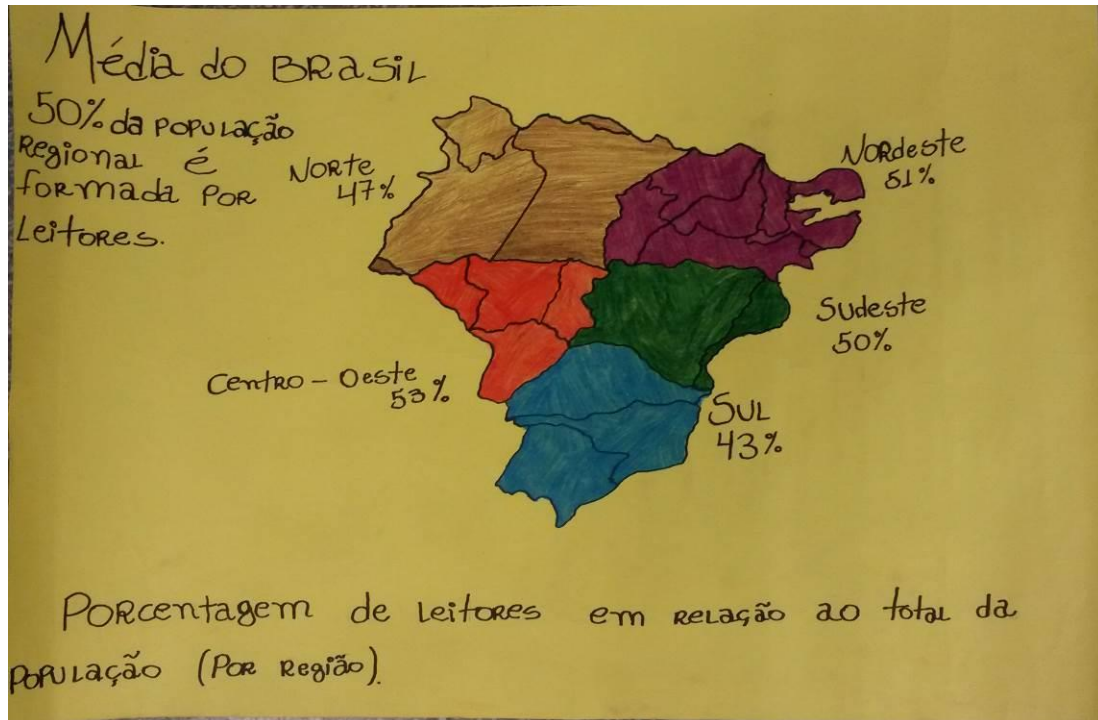 Média do BRasiL
50% da POPULAção
RegionaL é
formada POR
LeitoRes.
NORte
47%
NORdeste
51%
Sudeste
50%
CentRO - Oeste
53%
SUL
43%
PoRcentagem de Leitores em RELAção ao total da
POPULAção (PoR Região).